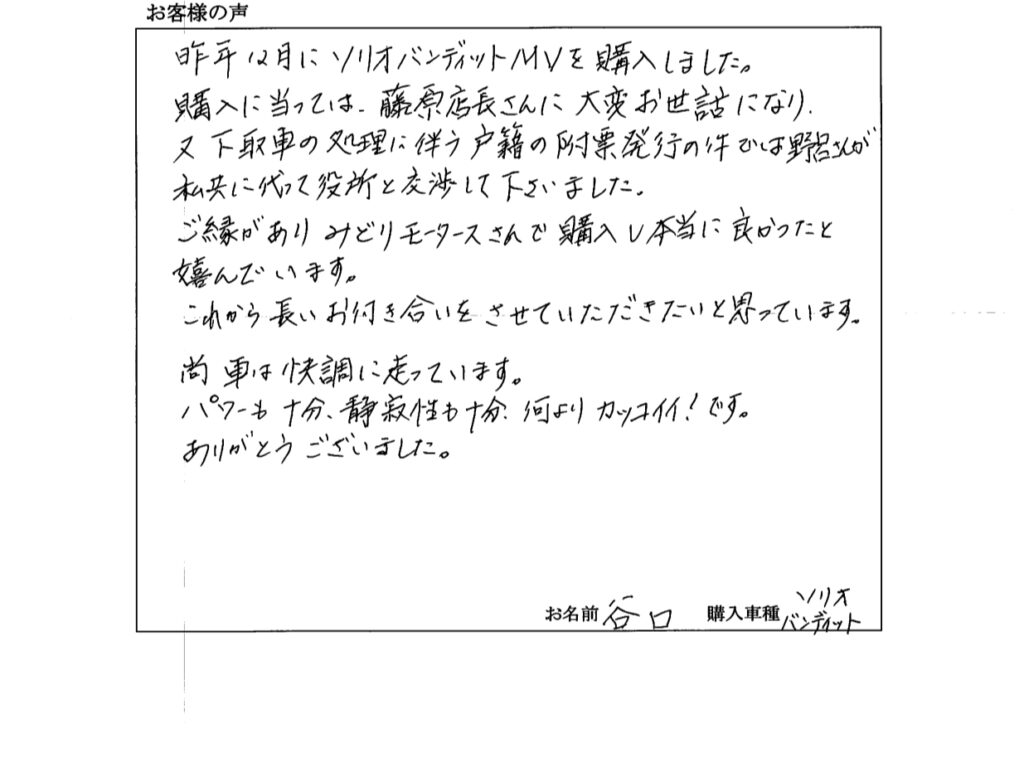 お客様の声
昨年12月にソリオバンディットMVを購入しました。
購入に当っては、藤原店長さんに大変お世話になり、
又下取車の処理に伴う戸籍の附票発行の件では野呂さんが
私共に代って役所と交渉して下さいました。
ご縁がありみどりモータースさんで購入し本当に良かったと
嬉んでいます。
これから長いお付き合いをさせていただきたいと思っています。
尚車は快調に走っています。
パワーも十分、静寂性も十分、何よりカッコイイ!です。
ありがとうございました。
お名前 谷口 購入車種 ソリオ
バンディット